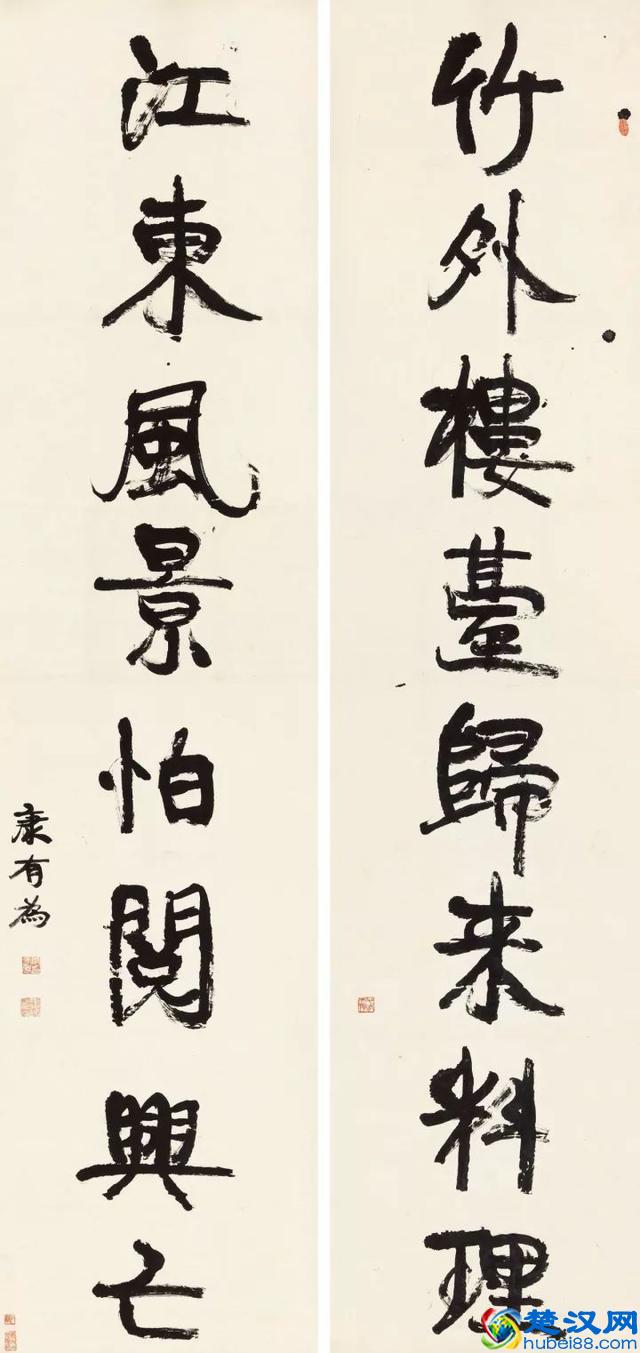 竹外樓臺歸来料理
江東風景怕閱興亡
康有為
楚汉网
hubei88.com